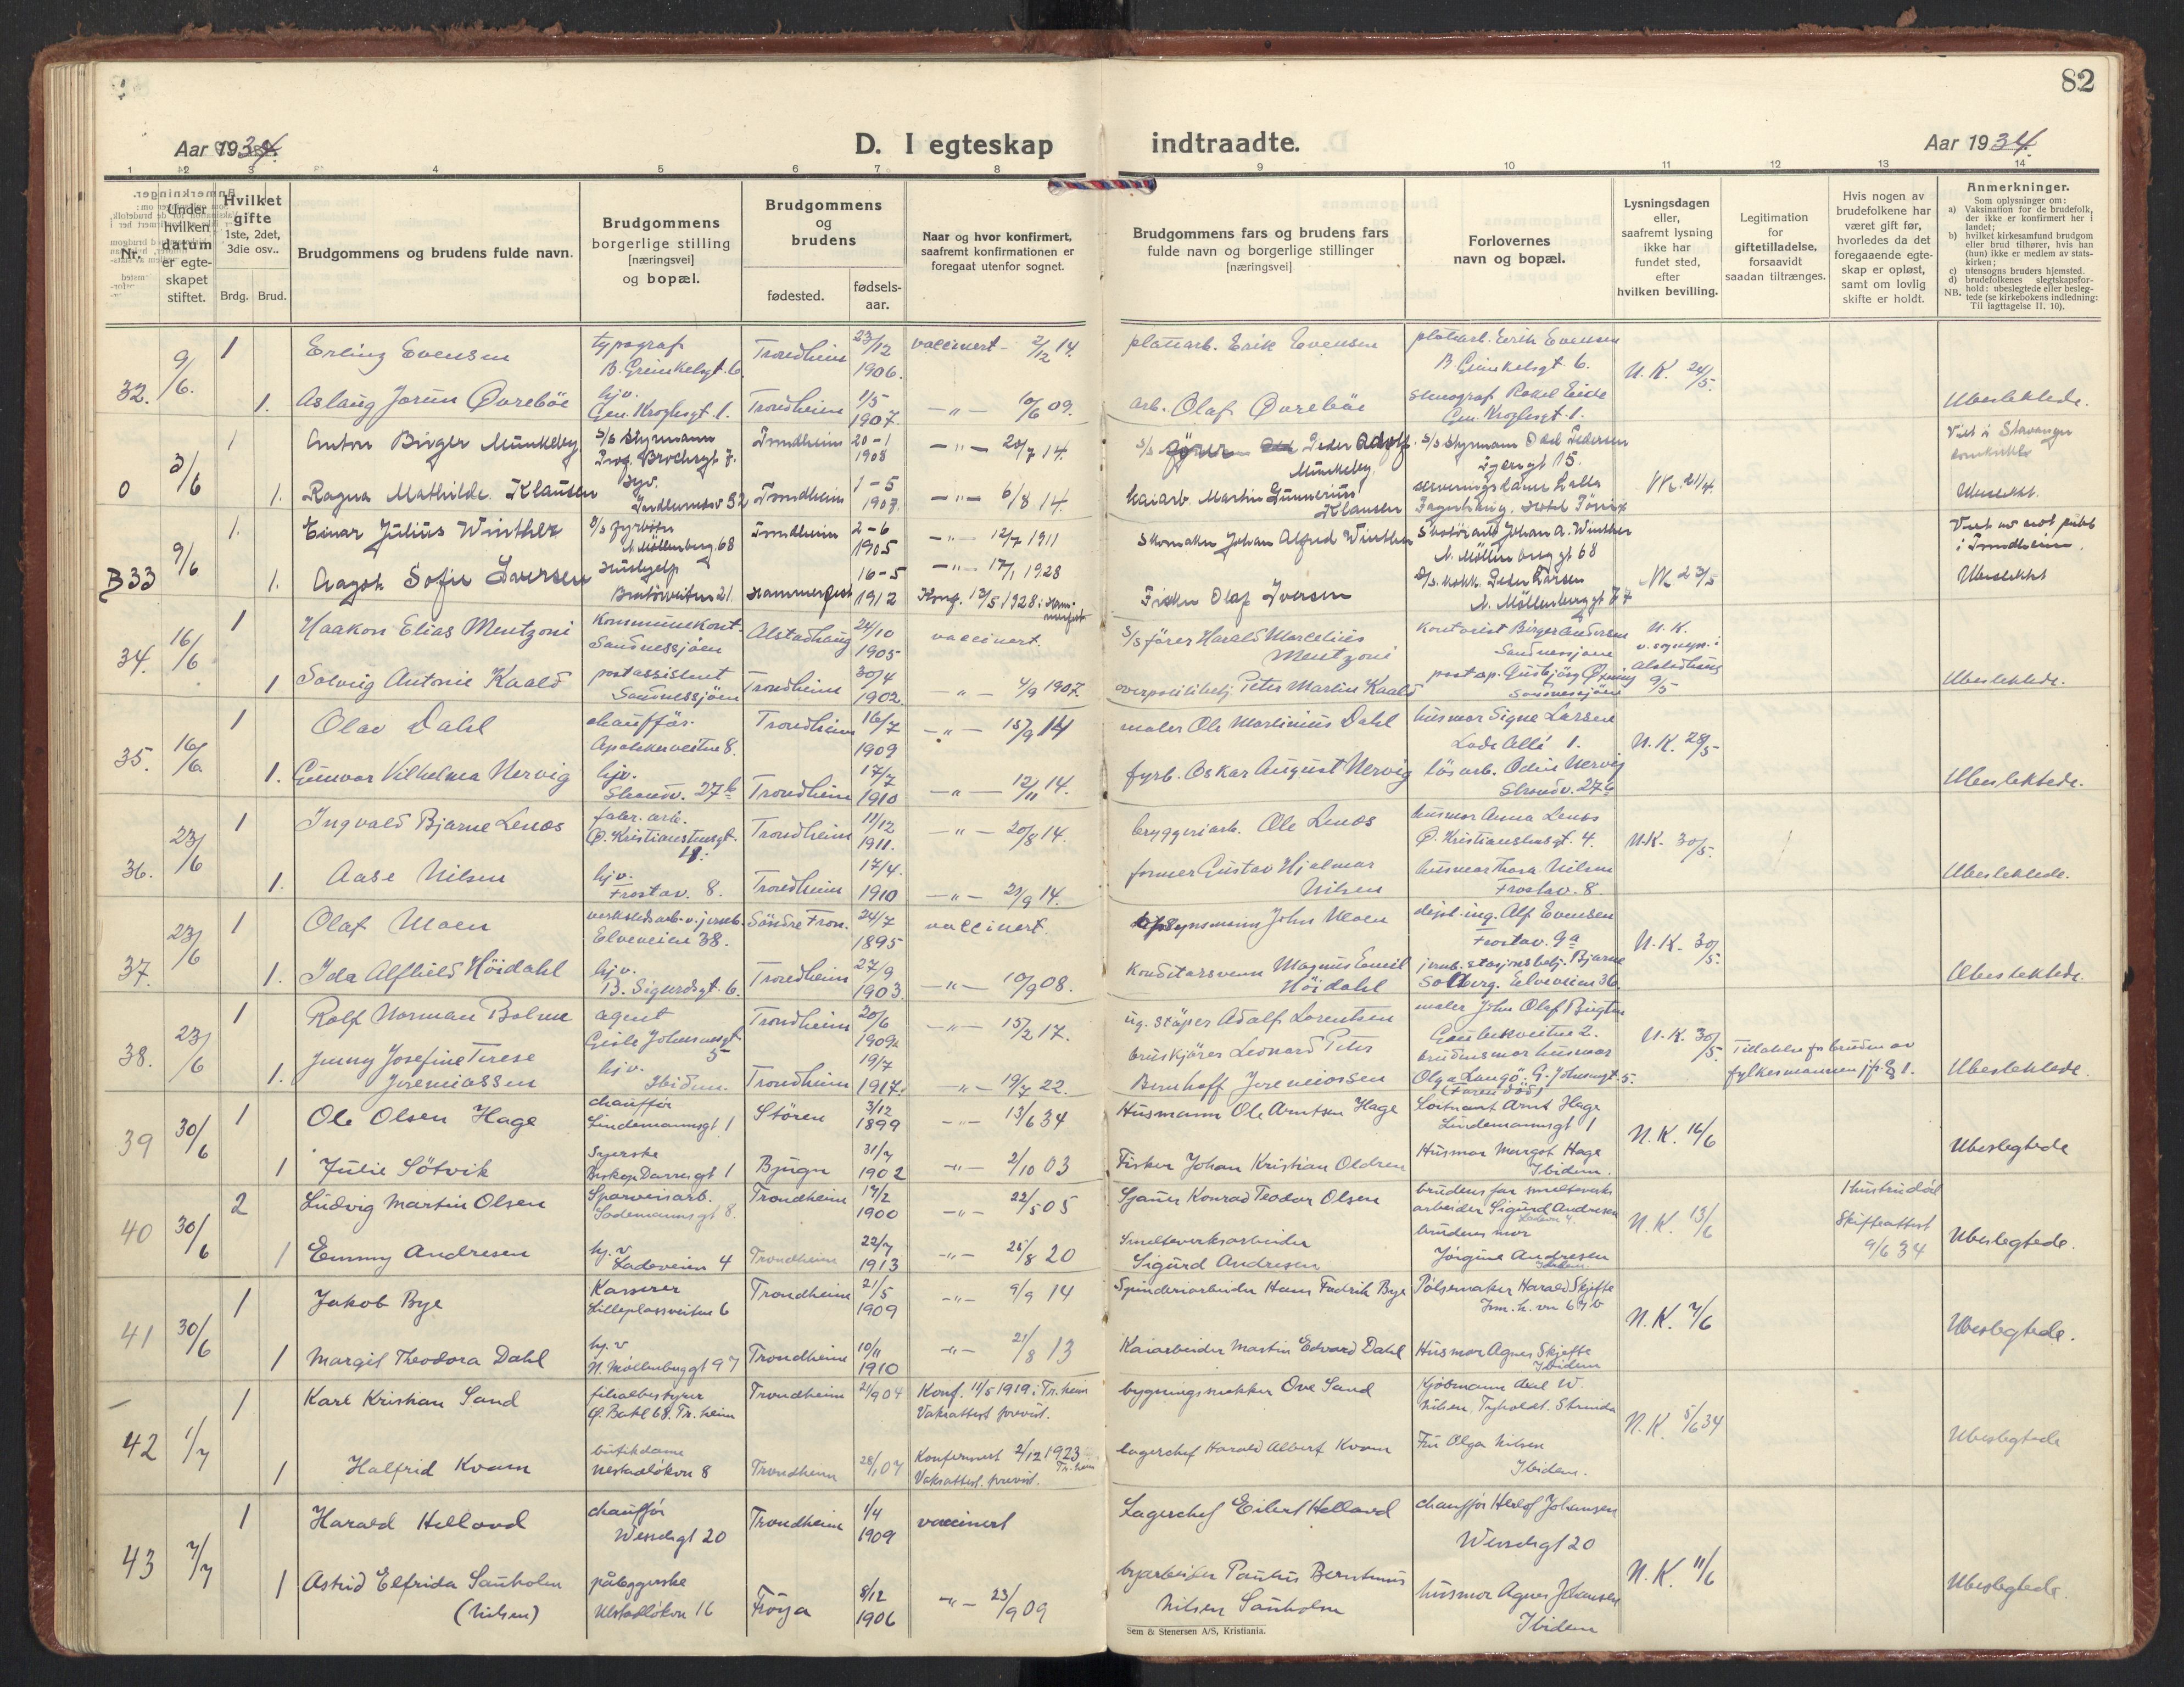 82
Aar 1934.
D. I egteskap
indtraadte.
Aar 1934.
1 2 3 4 5 6 7 8 9 10 11 12 13 14
Nr.
Under hvilken datum er egteskapet stiftet.
Hvilket gifte 1ste, 2det, 3die osv..
Brdg. Brud.
Brudgommens og brudens fulde navn.
Brudgommens borgerlige stilling [næringsvei] og bopæl.
Brudgommens og brudens
fødested.
fødselsaar.
Naar og hvor konfirmert, saafremt konfirmationen er foregaat utenfor sognet.
Brudgommens fars og brudens fars fulde navn og borgerlige stillinger [næringsvei]
Forlovernes navn og bopæl.
Lysningsdagen eller, saafremt lysning ikke har fundet sted, efter hvilken bevilling.
Legitimation for giftetilladelse, forsaavidt saadan tiltrænges.
Hvis nogen av brudefolkene har været gift før, hvorledes da det foregaaende egteskap er opløst, samt om lovlig skifte er holdt.
Anmerkninger.
Som oplysninger om:
a) Vaksination for de brudefolk, der ikke er konfirmert her i landet;
b) hvilket kirkesamfund brudgom eller brud tilhører, hvis han (hun) ikke er medlem av statskirken;
c) utensogns bruders hjemsted.
d) brudefolkenes slegtskapsforhold: ubeslegtede eller beslegtede (se kirkebokens indledning: Til Iagttagelse II. 10).
NB.
32. 9/6. 1 Erling Evensen typograf B. Grinkelsgt. 6. Trondheim 23/12 1906. vaccinert - 2/12 14. platearb. Erik Evensen platearb. Erik Evensen B. Grinkelsgt 6. N.K. 24/5.
1. Aslaug Jorun Øvrebøe hjv. Gen. Kroghsgt. 1. Trondheim 1/5 1907. -"- 10/6 09. arb. Olaf Øvrebøe stenograf Rakel Eide Gen. Kroghsgt. 1. Ubeslektede.
0 3/6 1 Anton Birger Munkeby S/s styrmann Prof. Brochsgt 7. Trondheim 20-1 1908 -"- 20/7 14. Peder Adolf Munkeby. S/s styrmann Odd Pedersen 15. Viet i Stavanger
1. Ragna Mathilde Klausen syv. 32 Trondheim 1-5 1907 -"- 6/8 14. Kaiarb. Martin Gunnerius Klausen N.K. 21/4. Ubeslekt.
B33 9/6 1. Einar Julius Winther S/s fyrbøter N. Möllenberg. 68 Trondheim 2-6 1905 -"- 12/7 1911 Skomaker Johan Alfred Winther Johan A. Winther N. Möllenberggt 68 i Trondheim.
1. Aagot Sofie Iversen Hushjelp 21. Hammerfest 16-5 1912 -"- 17/1 1928 Konf. 13/5 1928 i Hammerfest Fisker Olaf Iversen S/s. kokk. Peder Larsen N. Möllenberggt 77 N.K 23/5 Ubeslektet
34. 16/6 1 Haakon Elias Mentzoni Kommunekont. Sandnessjøen Alstadhaug 24/10 1905 vaccinert. S/s fører Harald Marcelius Mentzoni Kontorist Birger Andersen Sandnessjøen N.K. v. sognepr. i Alstadhaug 9/5
1 Solveig Antonie Kaald postassistent Sandnessjøen Trondheim 30/4 1902. -"- 4/9 1907. overpolitibetj. Peter Martin Kaald Sandnessjøen Ubeslektede.
35. 16/6 1 Olav Dahl chauffør. Apotekerveiten 8. Trondheim 16/7 1909 -"- 18/9 14 maler Ole Martinius Dahl husmor Signe Larsen Lade Allé 1. N.K. 28/5.
1. Gunvor Vilhelma Nervig hjv. Strandv. 27b Trondheim 17/7 1910 -"- 12/11 14. fyrb. Oskar August Nervig løsarb. Odin Nervig Strandv. 27b Ubeslektede.
36. 23/6 1 Ingvald Bjarne Lenos fabr. arb. Ø. Kristianstensgt. 4. Trondheim 11/12 1911. -"- 20/8 14. bryggeriarb. Ole Lenos husmor Anna Lenos Ø. Kristianstensgt. 4. N.K. 30/5.
1. Aase Nilsen hjv. Frostav. 8. Trondheim 17/4. 1910 -"- 21/9 14. former Gustav Hjalmar Nilsen husmor Thora Nilsen Frostav. 8 Ubeslektede.
37. 23/6 1 Olaf Moen verkstedsarb. v. jernb. Elveveien 38. Søndre Fron. 24/7 1895 vaccinert. John Moen dipl. ing. Alf Evensen Frostav. 9a N.K. 30/5.
1. Ida Alfhild Höidahl hjv. B. Sigurdsgt. 6. Trondheim 27/9 1903. -"- 10/9 08. Konditorsvenn Magnus Emil Höidahl jernb. stasjonsbetj. Bjarne Solberg. Elveveien 36. Ubeslektede.
38. 23/6 1 Rolf Norman Bolme agent Gisle Johnsensgt 5 Trondheim 20/6 1909. -"- 15/2 17. ug. støper Adolf Lorentsen maler John Olaf Bugten Gaubekveiten 2. N.K. 30/5.
1. Jenny Josefine Terese Jeremiassen hjv. Ibidem. Trondheim 19/7 1917. -"- 19/7 22. bruskjører Leonard Peter Bernhoff Jeremiassen brudens mor husmor Olga Langø. G. Johnsensgt. 5. (Faren død) Tilladelse for bruden av fylkesmannen jfr. § 1. Ubeslektede.
39 30/6 1 Ole Olsen Hage chauffør Lindemannsgt 1 Støren 3/12 1899 -"- 13/6 34 Husmann Ole Arntsen Hage Løitnant Arnt Hage Lindemannsgt 1 N.K. 16/6
1 Julie Søtvik Syerske Biskop Darresgt 1 Bjugn 31/7 1902 -"- 2/10 03 Fisker Johan Kristian Oldren Husmor Margot Hage Ibidem. Ubeslegtede
40 30/6 2 Ludvig Martin Olsen Sporveisarb. Sodemannsgt 8. Trondheim 17/2 1900 -"- 22/5 05 Sjauer Konrad Teodor Olsen brudens far smelteverksarbeider Sigurd Andresen Ladevn 4. N.K. 13/6 Hustru død Skifteattest 9/6 34
1 Emmy Andresen hj. v Ladeveien 4 Trondheim 22/7 1913 -"- 25/8 20 Smelteverksarbeider Sigurd Andresen brudens mor Jørgine Andresen Ibidem. Ubeslegtede.
41 30/6 1 Jakob Bye Kasserer Lilleplassveiten 6 Trondheim 21/5 1909 -"- 9/9 14 Spinderiarbeider Hans Fredrik Bye Pølsemaker Harald Skjefte 67b N.K. 7/6
1 Margit Theodora Dahl hj. v N. Møllenberggt 97 Trondheim 10/11 1910 -"- 21/8 13 Kaiarbeider Martin Edvard Dahl Husmor Agnes Skjefte Ibidem Ubeslegtede.
42 1/7 1 Karl Kristian Sand filialbestyrer Ø. Bakl. 68. Tr.heim Trondheim 21/9 04 Konf. 11/5 1919 i Tr.heim Vaksattest forevist. bygningssnekker Ove Sand Kjøbmann Axel W. Nilsen, Tyholdt. Strinda N.K. 5/6 34
1 Halfrid Kvam butikdame Ulstadløkvn 8 Trondheim 28/1 07 Konfirmert 2/12 1923 Tr.heim Vaksattest. forevist. lagerchef Harald Albert Kvam Fru Olga Nilsen Ibidem. Ubeslegtede
43 7/7 1 Harald Helland chauffør Wesselsgt 20 Trondheim 1/4 1909 vaccinert Lagerchef Eilert Helland chauffør Herlof Johansen Wesselsgt 20 N.K. 11/6
1 Astrid Elfrida Sauholm (Nilsen) påleggerske Ulstadløkvn 16 Frøya 8/12 1906 -"- 23/9 09 byarbeider Paulus Berntinus Nilsen Sauholm husmor Agnes Johansen Ibidem Ubeslegtede.
Sem & Stenersen A/S, Kristiania.